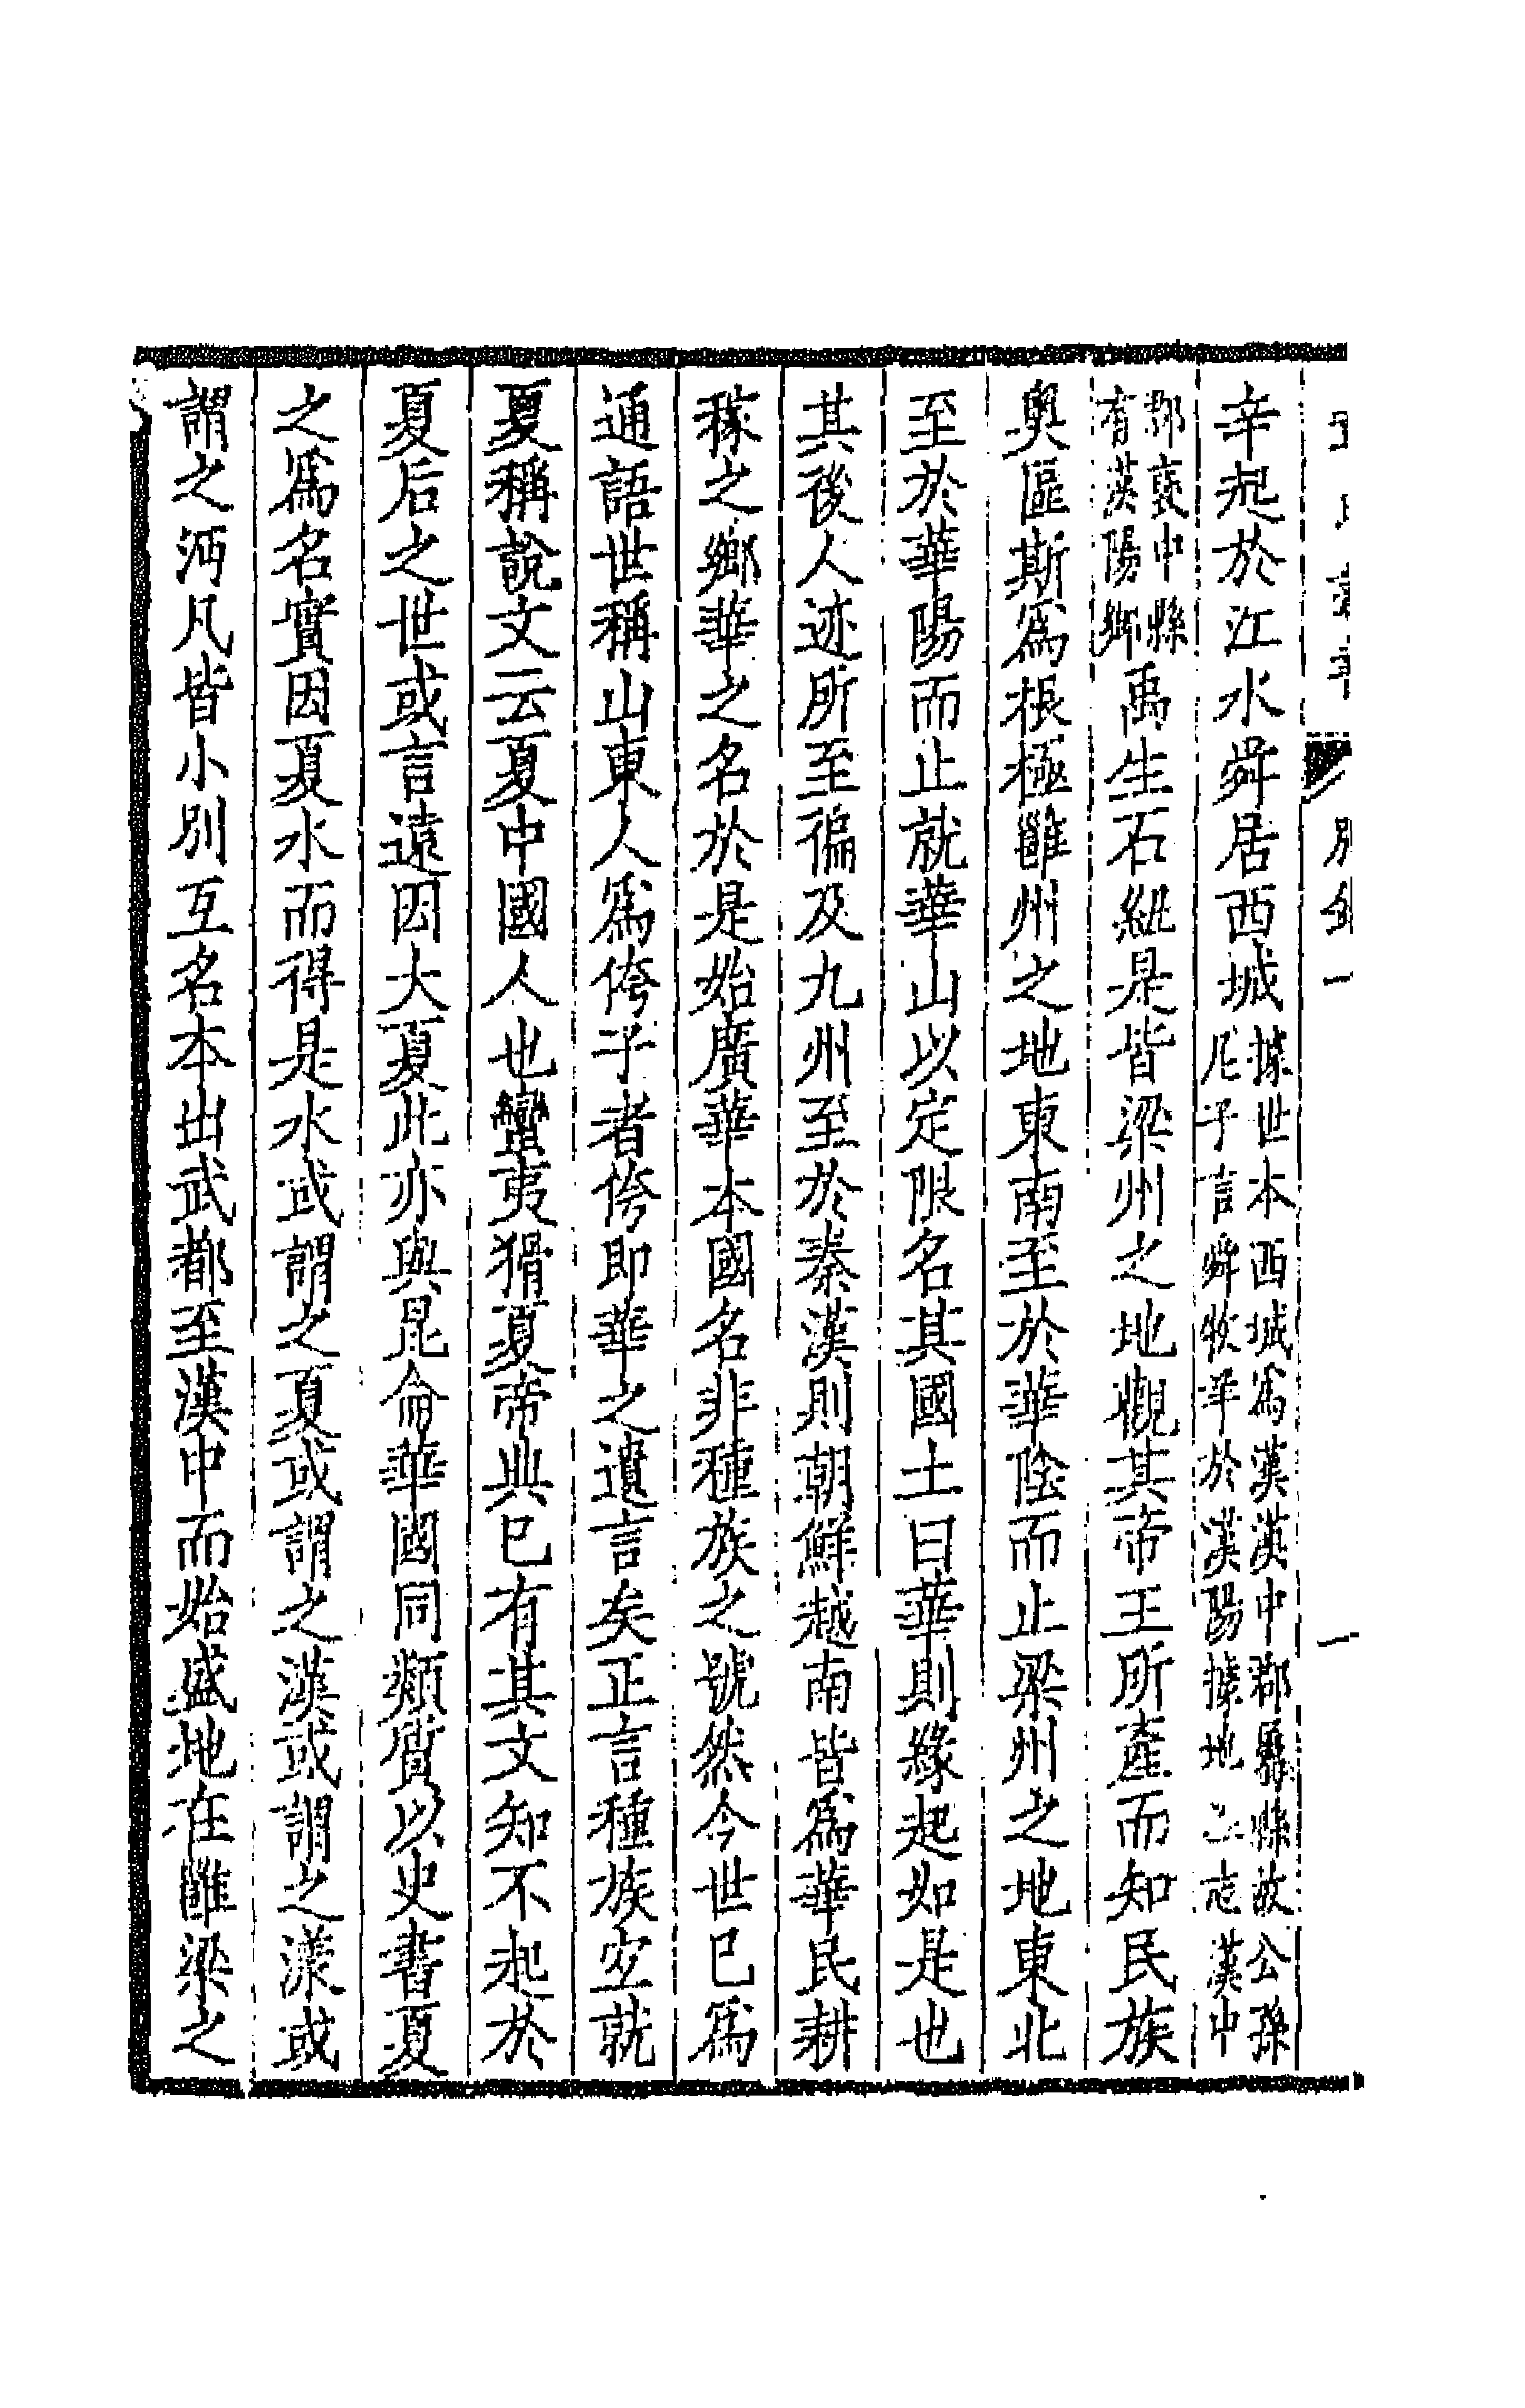 別錄一 一
辛起於江水舜居西城
據世本西城爲漢漢中郡屬縣故公孫
尼子言舜牧羊於漢陽據地志漢中
郡襃中縣
有漢陽鄉
禹生石紐是皆梁州之地觀其帝王所產而知民族
奧區斯爲根極雝州之地東南至於華陰而止梁州之地東北
至於華陽而止就華山以定限名其國土曰華則緣起如是也
其後人迹所至徧及九州至於秦漢則朝鮮越南皆爲華民耕
稼之鄉華之名於是始廣華本國名非種族之號然今世已爲
通語世稱山東人爲侉子者侉即華之遺言矣正言種族宐就
夏稱說文云夏中國人也蠻夷猾夏帝典已有其文知不起於
夏后之世或言遠因大夏此亦與昆侖華國同類質以史書夏
之爲名實因夏水而得是水或謂之夏或謂之漢或謂之漾或
謂之沔凡皆小別互名本出武都至漢中而始盛地在雝梁之